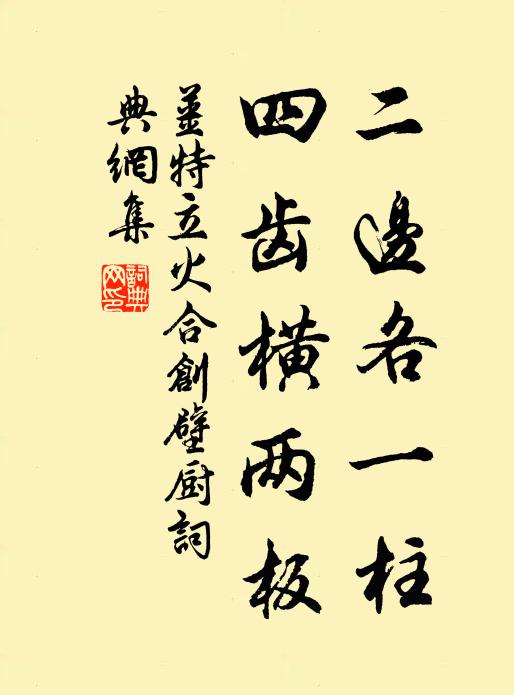 二邊各一柱
四齿横两板
姜特立火合創壁厨詞
典網集
詞典
网印